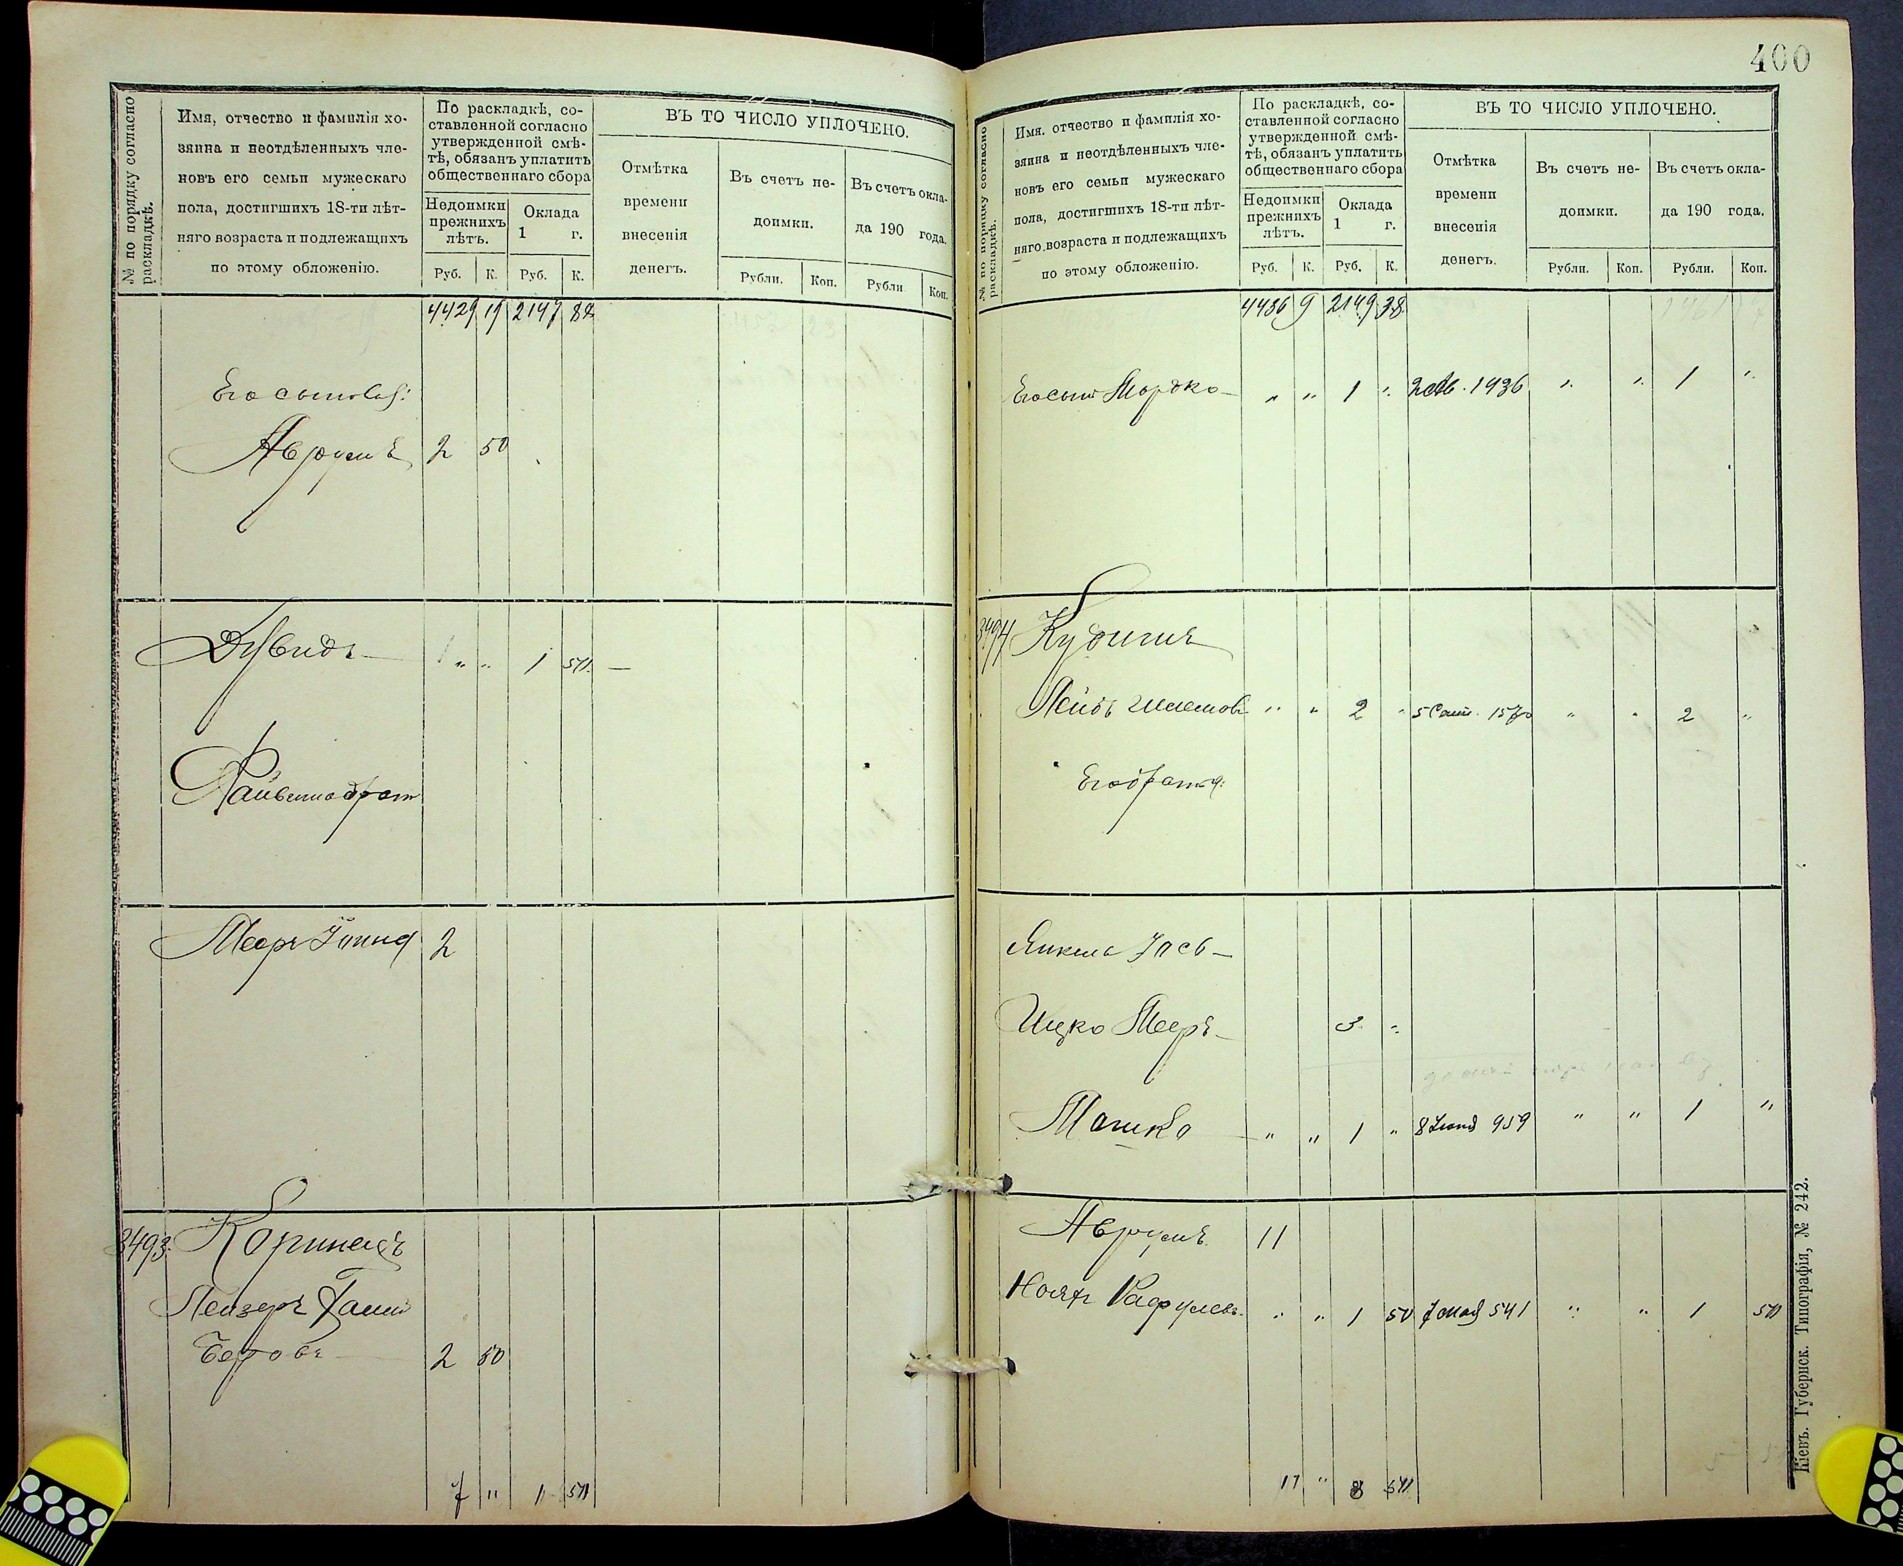 400
№ по порядку согласно раскладкѣ.
Имя, отчество и фамилія хо-
зяина и неотдѣленныхъ чле-
новъ его семьи мужескаго
пола, достигшихъ 18-ти лѣт-
няго возраста и подлежащихъ
по этому обложенію.
По раскладкѣ, со-
ставленной согласно
утвержденной смѣ-
тѣ, обязанъ уплатить
общественнаго сбора
Недоимки
прежнихъ
лѣтъ.
Оклада
1 г.
Руб. К. Руб. К.
ВЪ ТО ЧИСЛО УПЛОЧЕНО.
Отмѣтка
времени
внесенія
денегъ.
Въ счетъ не-
доимки.
Въ счетъ окла-
да 190 года.
Рубли. Коп. Рубли Коп.
4429 19 2147 88
Его сыновья:
Аврумъ 2 50
Дувидъ — " " 1 50 —
Файвель братъ
Мееръ 2
3493. Коринецъ
Лейзеръ
Беровъ 2 50
7 " 1 50
№ по порядку согласно раскладкѣ.
Имя. отчество и фамилія хо-
зяина и неотдѣленныхъ чле-
новъ его семьи мужескаго
пола, достигшихъ 18-ти лѣт-
няго возраста и подлежащихъ
по этому обложенію.
По раскладкѣ, со-
ставленной согласно
утвержденной смѣ-
тѣ, обязанъ уплатить
общественнаго сбора
Недоимки
прежнихъ
лѣтъ.
Оклада
1 г.
Руб. К. Руб. К.
ВЪ ТО ЧИСЛО УПЛОЧЕНО.
Отмѣтка
времени
внесенія
денегъ.
Въ счетъ не-
доимки.
Въ счетъ окла-
да 190 года.
Рубли. Коп. Рубли. Коп.
4436 9 2149 38
Его сынъ Мордко — " " 1 " 1936 " " 1 "
3494 Кудишъ
Лейбъ Шлемов " " 2 " 5 Сент. 1570 " " 2 "
Его братья:
Янкель —
Ицко Мееръ — 3 "
Мошко — " " 1 " 8 Іюня 959 " " 1 "
Аврумъ 11
Рафулевъ " " 1 50 7 мая 541 " " 1 50
11 " 8 50
Кіевъ. Губернск. Типографія, № 242.